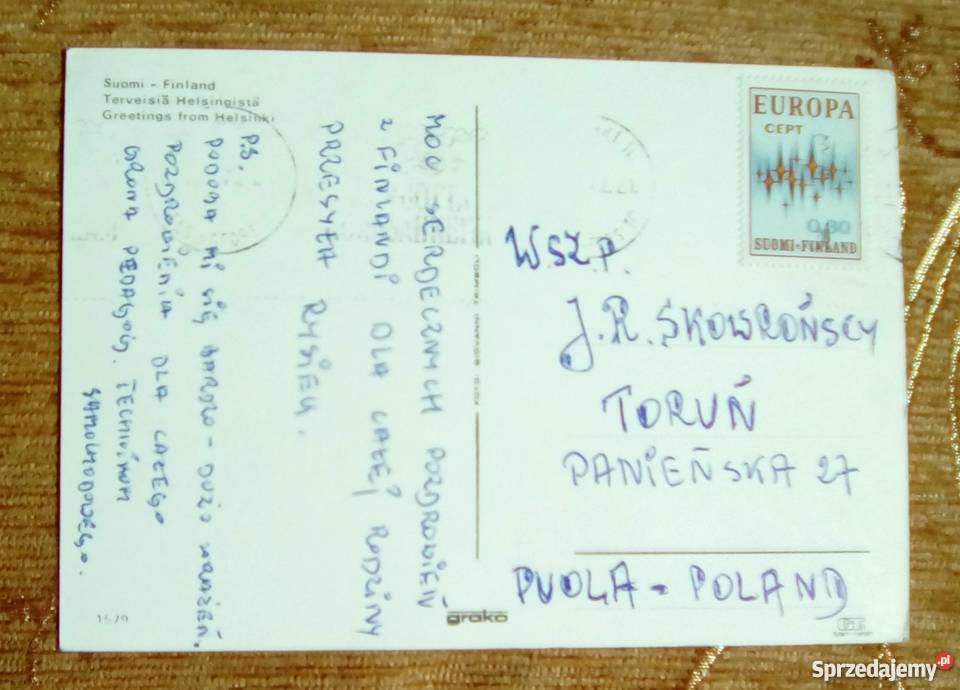 Suomi - Finland
Terveisiä Helsingistä
Greetings from Helsinki
MOC SERDECZNYCH POZDROWIEŃ
Z FINLANDI DLA CAŁEJ RODZINY
PRZESYŁA RYSIEK.
P.S.
PODOBA MI SIĘ BARDZO - DUŻO WRAŻEŃ.
POZDROWIENIA DLA CAŁEGO
GRONA PEDAGOG. TECHNIKUM
SAMOCHODOWEGO.
1579
grako
EUROPA
CEPT
0,30
SUOMI-FINLAND
W.SZ.P.
J.R. SKOWROŃSCY
TORUŃ
PANIEŃSKA 27
PUOLA - POLAND
Sprzedajemy.pl